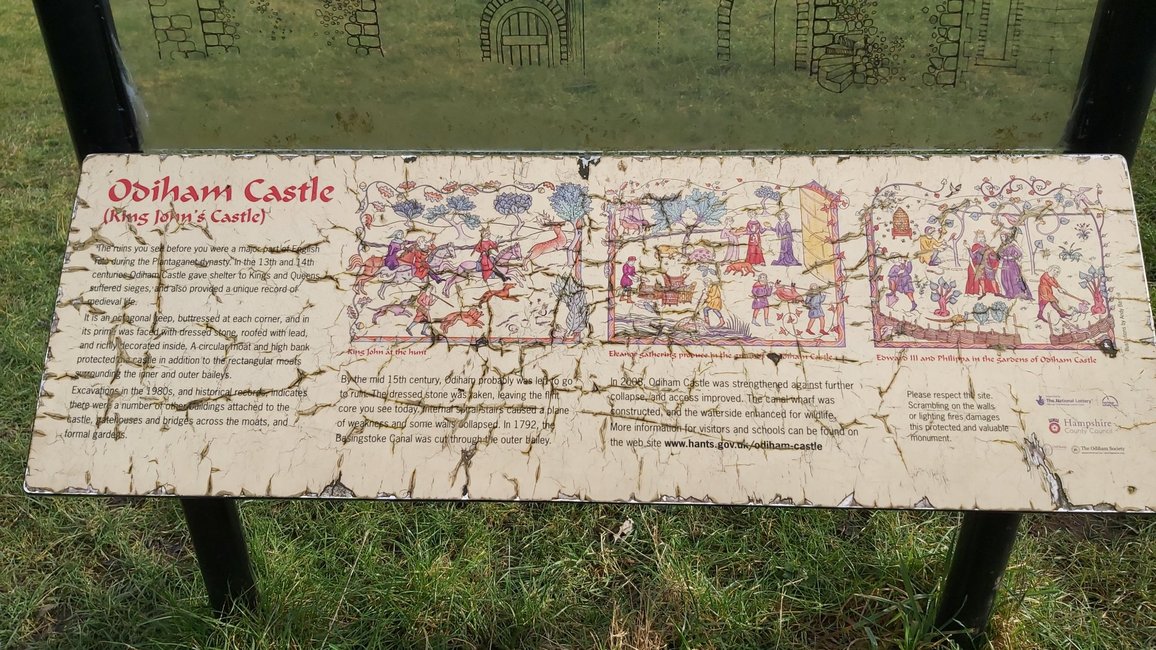 Odiham Castle
(King John's Castle)
The ruins you see before you were a major part of English
life during the Plantaganet dynasty. In the 13th and 14th
centuries Odiham Castle gave shelter to Kings and Queens,
suffered sieges, and also provided a unique record of
medieval life.
It is an octagonal keep, buttressed at each corner, and in
its prime was faced with dressed stone, roofed with lead,
and richly decorated inside. A circular moat and high bank
protected the castle in addition to the rectangular moats
surrounding the inner and outer baileys.
Excavations in the 1980s, and historical records, indicates
there were a number of other buildings attached to the
castle, gatehouses and bridges across the moats, and
formal gardens.
King John at the hunt
By the mid 15th century, Odiham probably was left to go
to ruin. The dressed stone was taken, leaving the flint
core you see today. Internal spiral stairs caused a plane
of weakness and some walls collapsed. In 1792, the
Basingstoke Canal was cut through the outer bailey.
Eleanor gathering produce in the grounds of Odiham Castle
In 2008, Odiham Castle was strengthened against further
collapse, and access improved. The canal wharf was
constructed, and the waterside enhanced for wildlife.
More information for visitors and schools can be found on
the web site www.hants.gov.uk/odiham-castle
Edward III and Philippa in the gardens of Odiham Castle
Please respect the site.
Scrambling on the walls
or lighting fires damages
this protected and valuable
monument.
The National Lottery
Hampshire
County Council
The Odiham Society